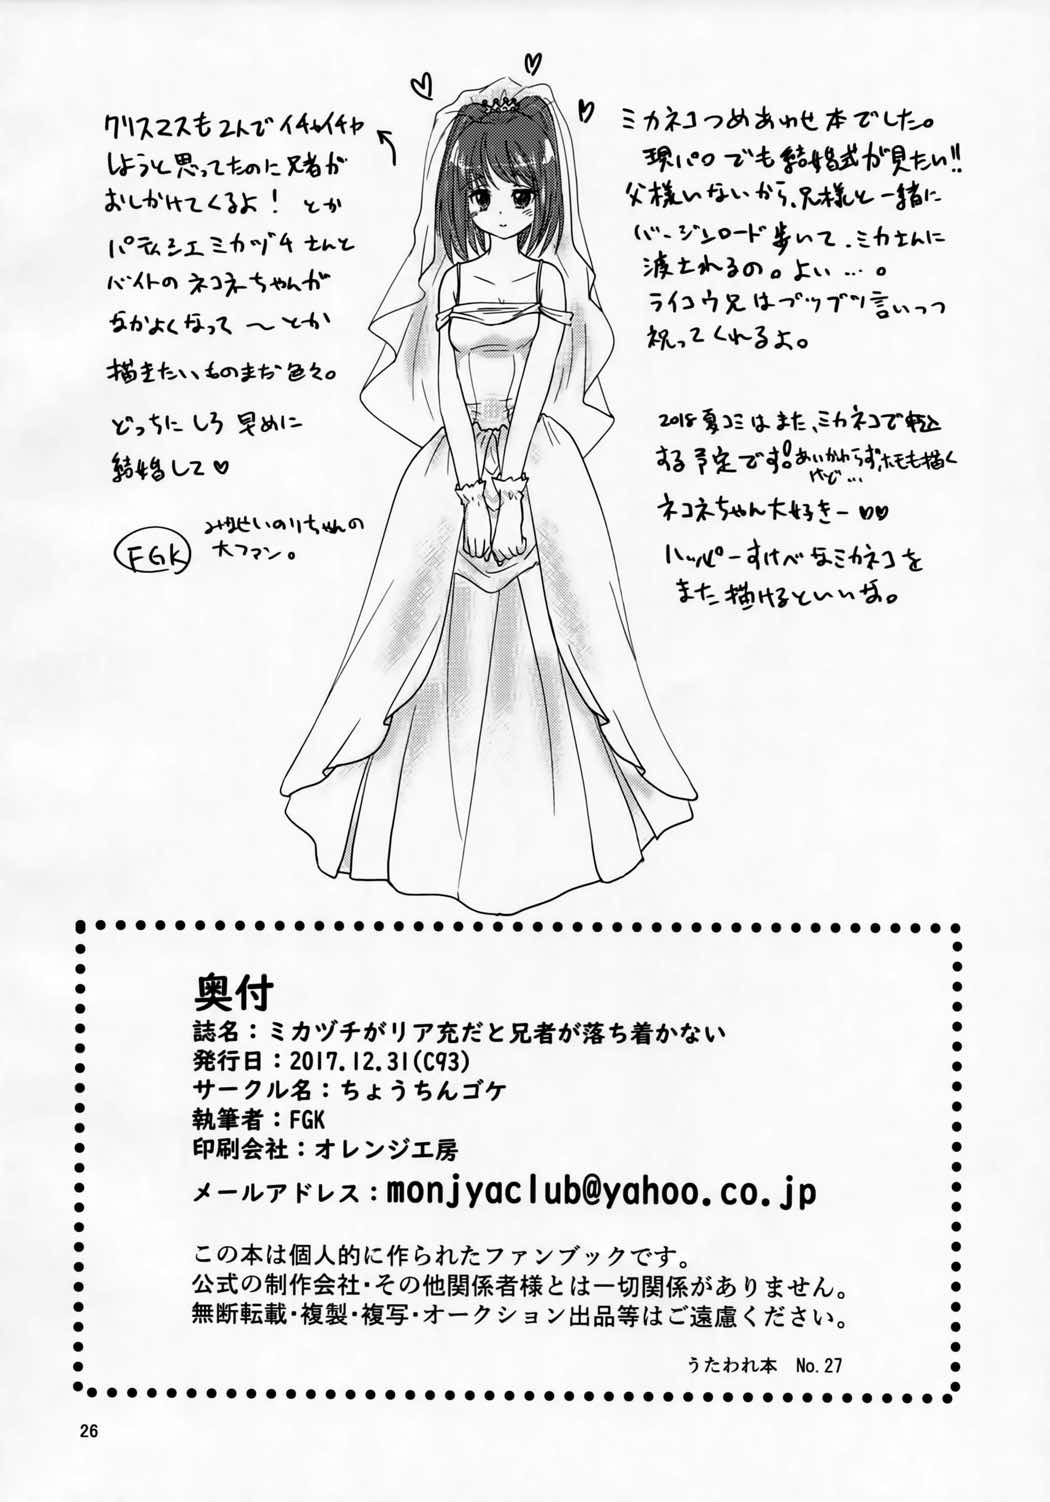 ミカネコつめあわせ本でした。
現パロでも結婚式が見たい!!
父様いないから、兄様と一緒に
バージンロード歩いて、ミカさんに
渡されるの。よい…。
ライコウ兄はブツブツ言いつつ
祝ってくれるよ。
2018夏コミはまた、ミカネコで申込
する予定です!あいかわらず、ホモも描く
けど…
ネコネちゃん大好きー♥♥
ハッピーすけべなミカネコを
また描けるといいな。
クリスマスも2人でイチャイチャ
しようと思ってたのに兄者が
おしかけてくるよ!とか
パティシエミカヅチさんと
バイトのネコネちゃんが
なかよくなって〜とか
描きたいものまだ色々。
どっちにしろ早めに
結婚して♥
FGK
みなせいのりちゃんの
大ファン。
奥付
誌名：ミカヅチがリア充だと兄者が落ち着かない
発行日：2017.12.31(C93)
サークル名：ちょうちんゴケ
執筆者：FGK
印刷会社：オレンジ工房
メールアドレス：monjyaclub@yahoo.co.jp
この本は個人的に作られたファンブックです。
公式の制作会社・その他関係者様とは一切関係がありません。
無断転載・複製・複写・オークション出品等はご遠慮ください。
うたわれ本 No.27
26